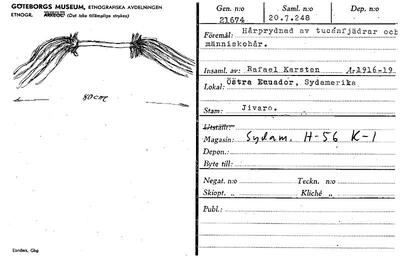 GÖTEBORGS MUSEUM, ETNOGRAFISKA AVDELNINGEN
ETNOGR. ARKEOL. (Det icke tillämpliga strykes)
80 cm
Esselte, Gbg
Gen. n:o Saml. n:o Dep. n:o
21674 20.7.248
Föremål: Hårprydnad av tucanfjädrar och
människohår.
Insaml. av: Rafael Karsten År 1916-19
Lokal: Östra Ecuador, Sydamerika
Stam: Jivaro.
Utställt:
Magasin: Sydam. H-56 K-1
Depon.:
Byte till:
Negat. n:o Teckn. n:o
Skiopt. „ Kliché „
Publ.: